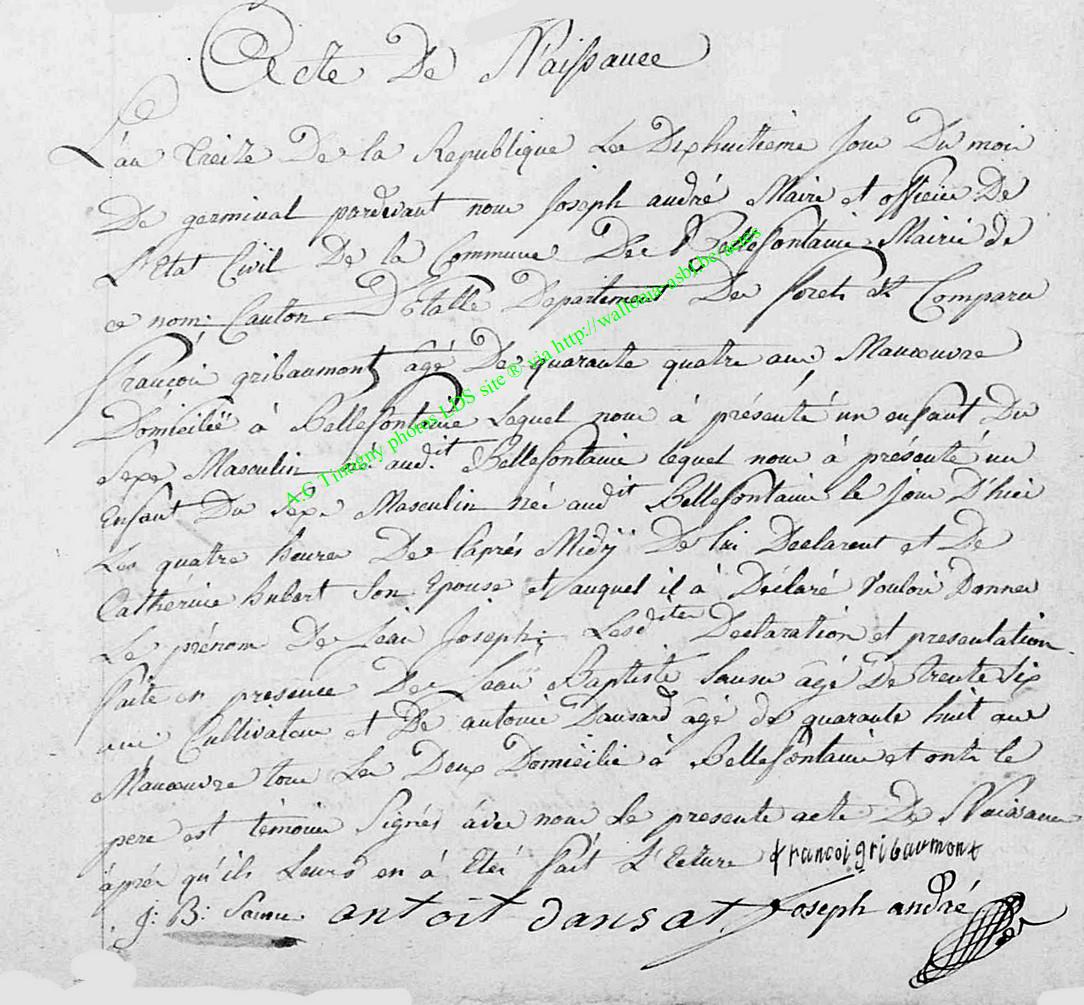 Acte De Naissance
L'an treize De la Republique Le Dixhuitieme Jour Du mois
De germinal pardevant nous Joseph andré Maire et officier De
L'Etat Civil De la Commune De Bellefontaine Mairie de
ce nom: Canton D'Etalle Departement Des forets Est Comparu
françois gribaumont âgé De quarante quatre ans, Manœuvre
Domicilié à Bellefontaine Lequel nous à présenté un enfant Du
Sexe Masculin né audit Bellefontaine lequel nous à présenté un
Enfant Du Sexe Masculin né audit Bellefontaine le Jour D'hier
Les quatre heures De l'aprés Midy De lui Declarent et De
Catherine hubert Son Epouse et auquel il à Déclaré Vouloir Donner
Le prénom De Jean Joseph; Lesdites Declaration et presentation
faite en presence De Jean Baptiste âgé De trente Six
ans Cultivateur et De antoine Dansard âgé de quarante huit ans
Manœuvre tous Les Deux Domicilié à Bellefontaine et onts le
pere est témoins Signés avec nous Le presente acte De Naissance
âpres qu'ils Leurs en à Eté fait L'Ecture francoi gribaumont
J: B: antoit dansat Joseph andré
A.G Tintigny photos LDS site ® via http://wallonia-asbl.be/actes